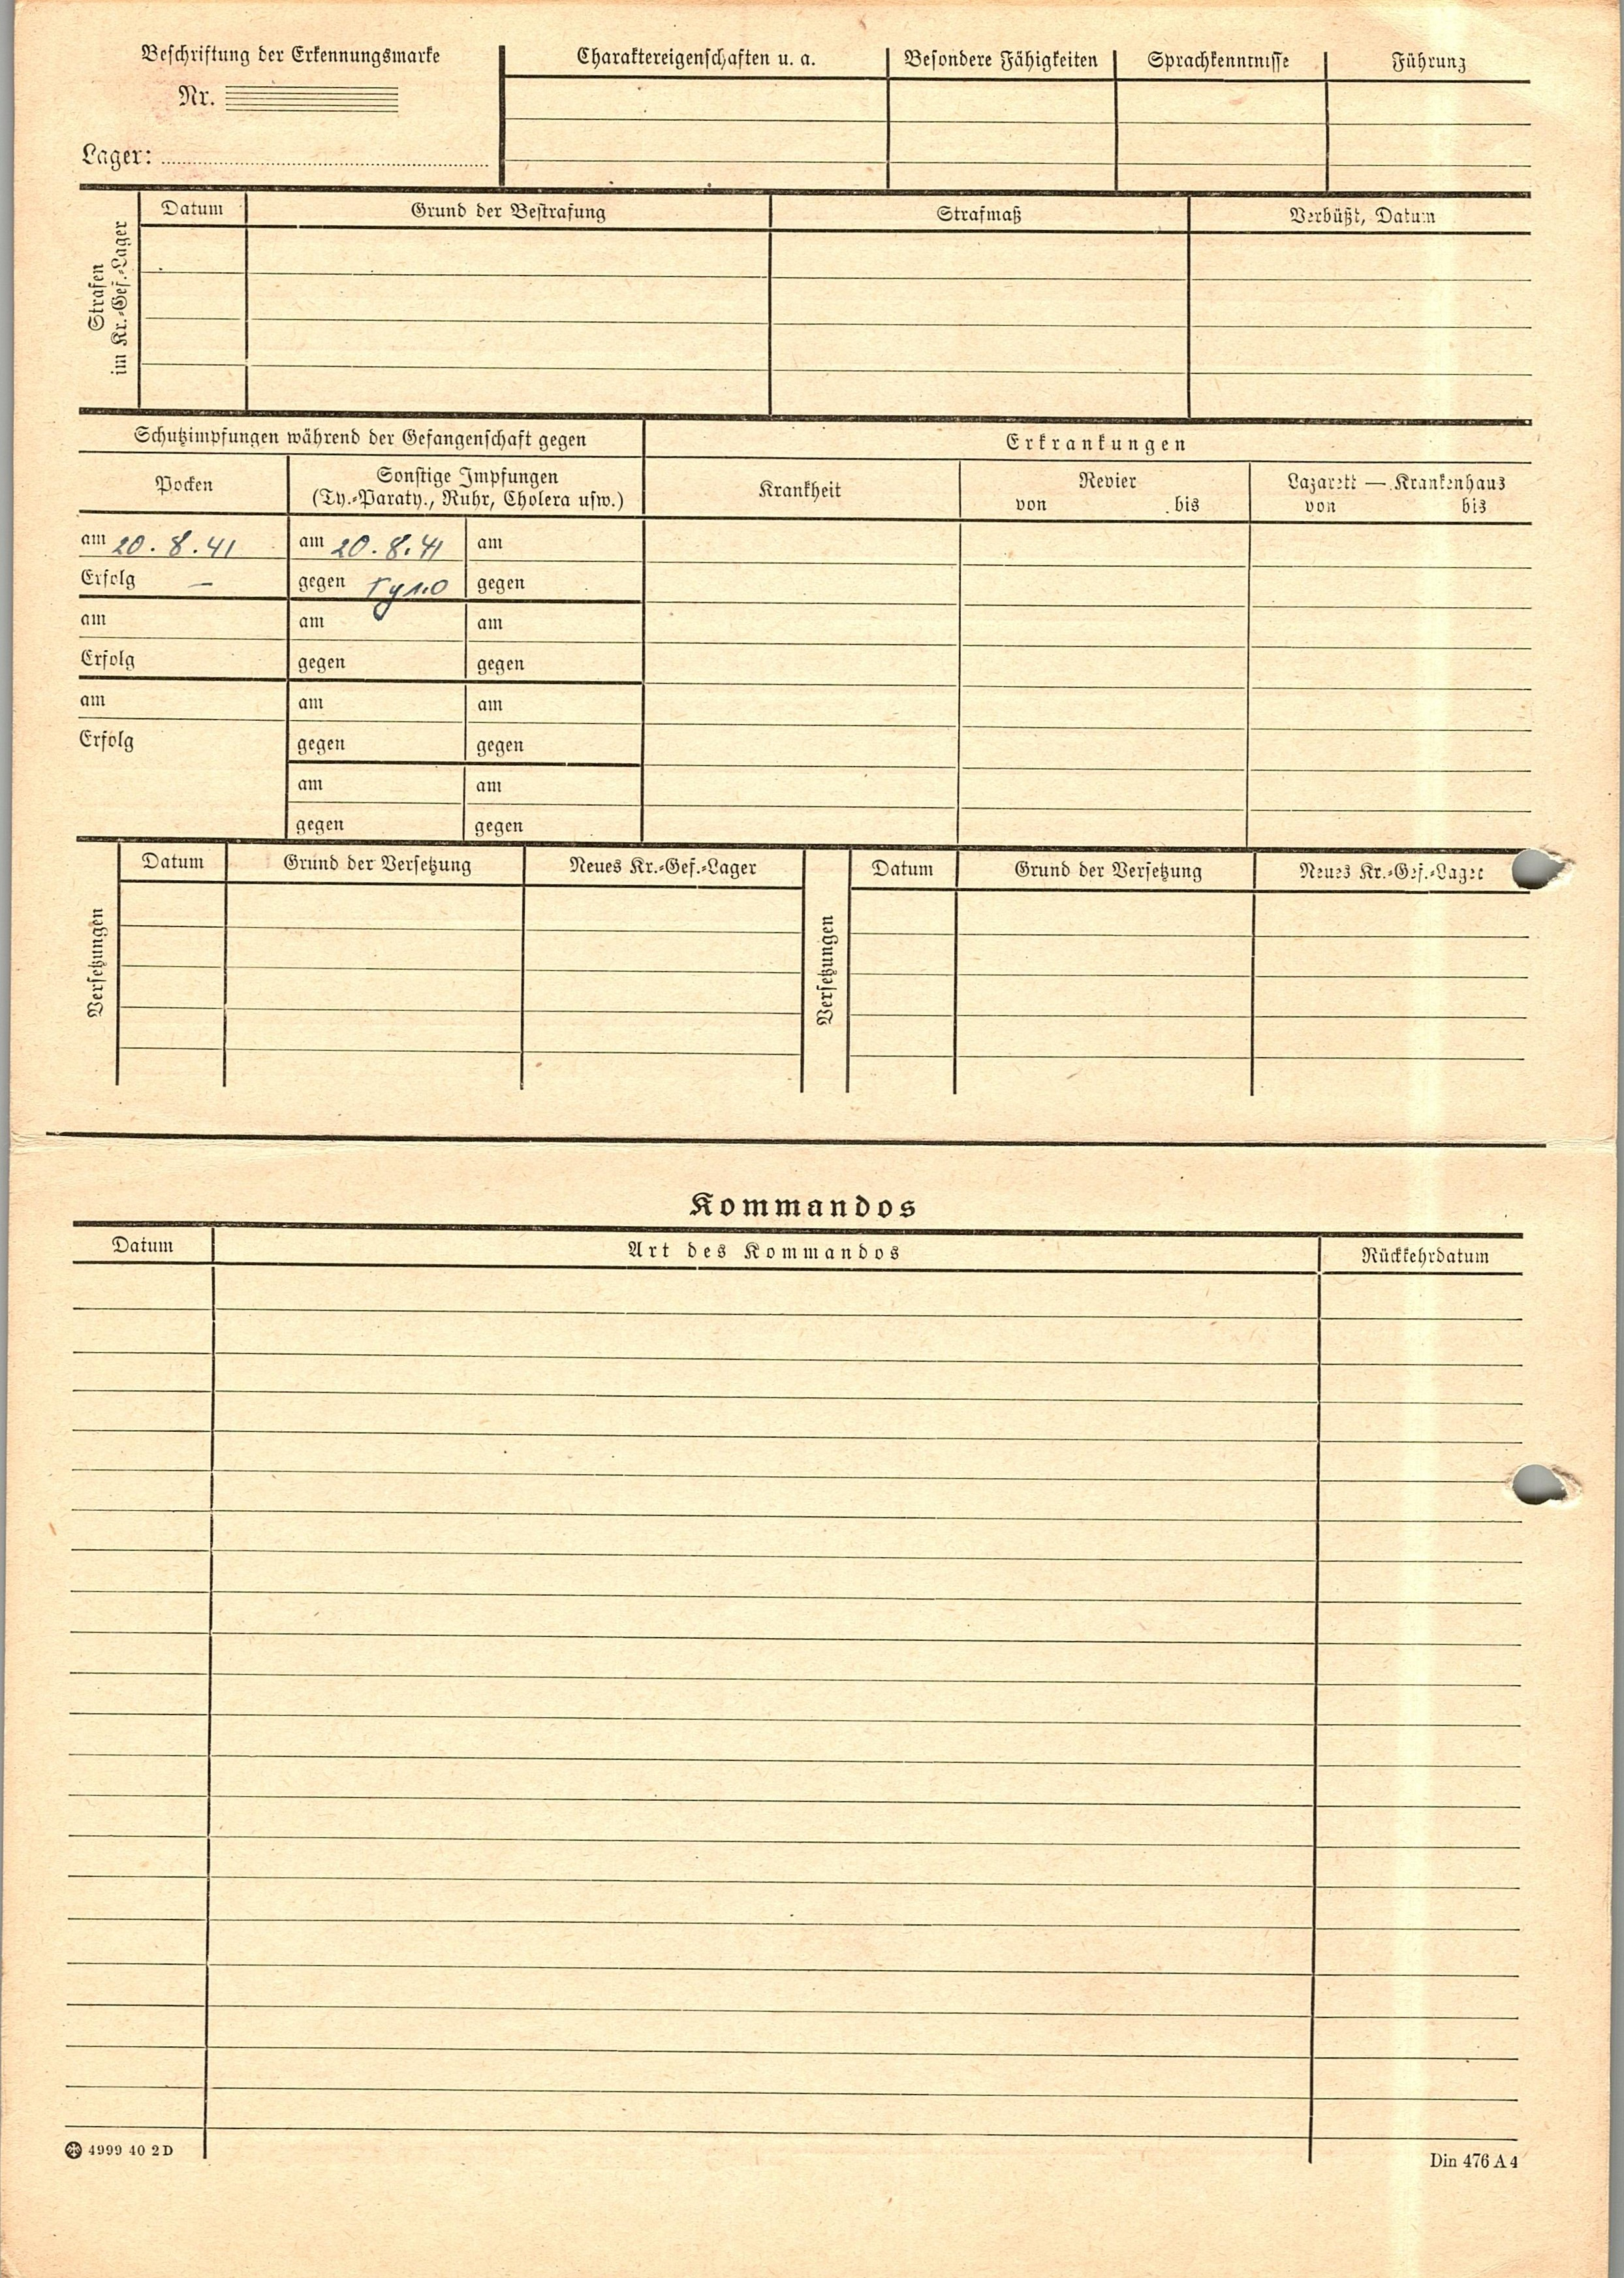 Beschriftung der Erkennungsmarke
Nr.
Lager:
Charaktereigenschaften u. a.
Besondere Fähigkeiten
Sprachkenntnisse
Führung
Strafen
im Kr.-Gef.-Lager
Datum
Grund der Bestrafung
Strafmaß
Verbüßt, Datum
Schutzimpfungen während der Gefangenschaft gegen
Erkrankungen
Pocken
Sonstige Impfungen
(Ty.-Paraty., Ruhr, Cholera usw.)
Krankheit
Revier
von bis
Lazarett — Krankenhaus
von bis
am 20.8.41 am 20.8.41 am
Erfolg — gegen gegen
am am am
Erfolg gegen gegen
am am am
Erfolg gegen gegen
am am
gegen gegen
Versetzungen
Datum
Grund der Versetzung
Neues Kr.-Gef.-Lager
Versetzungen
Datum
Grund der Versetzung
Neues Kr.-Gef.-Lager
Kommandos
Datum
Art des Kommandos
Rückkehrdatum
4999 40 2 D
Din 476 A 4